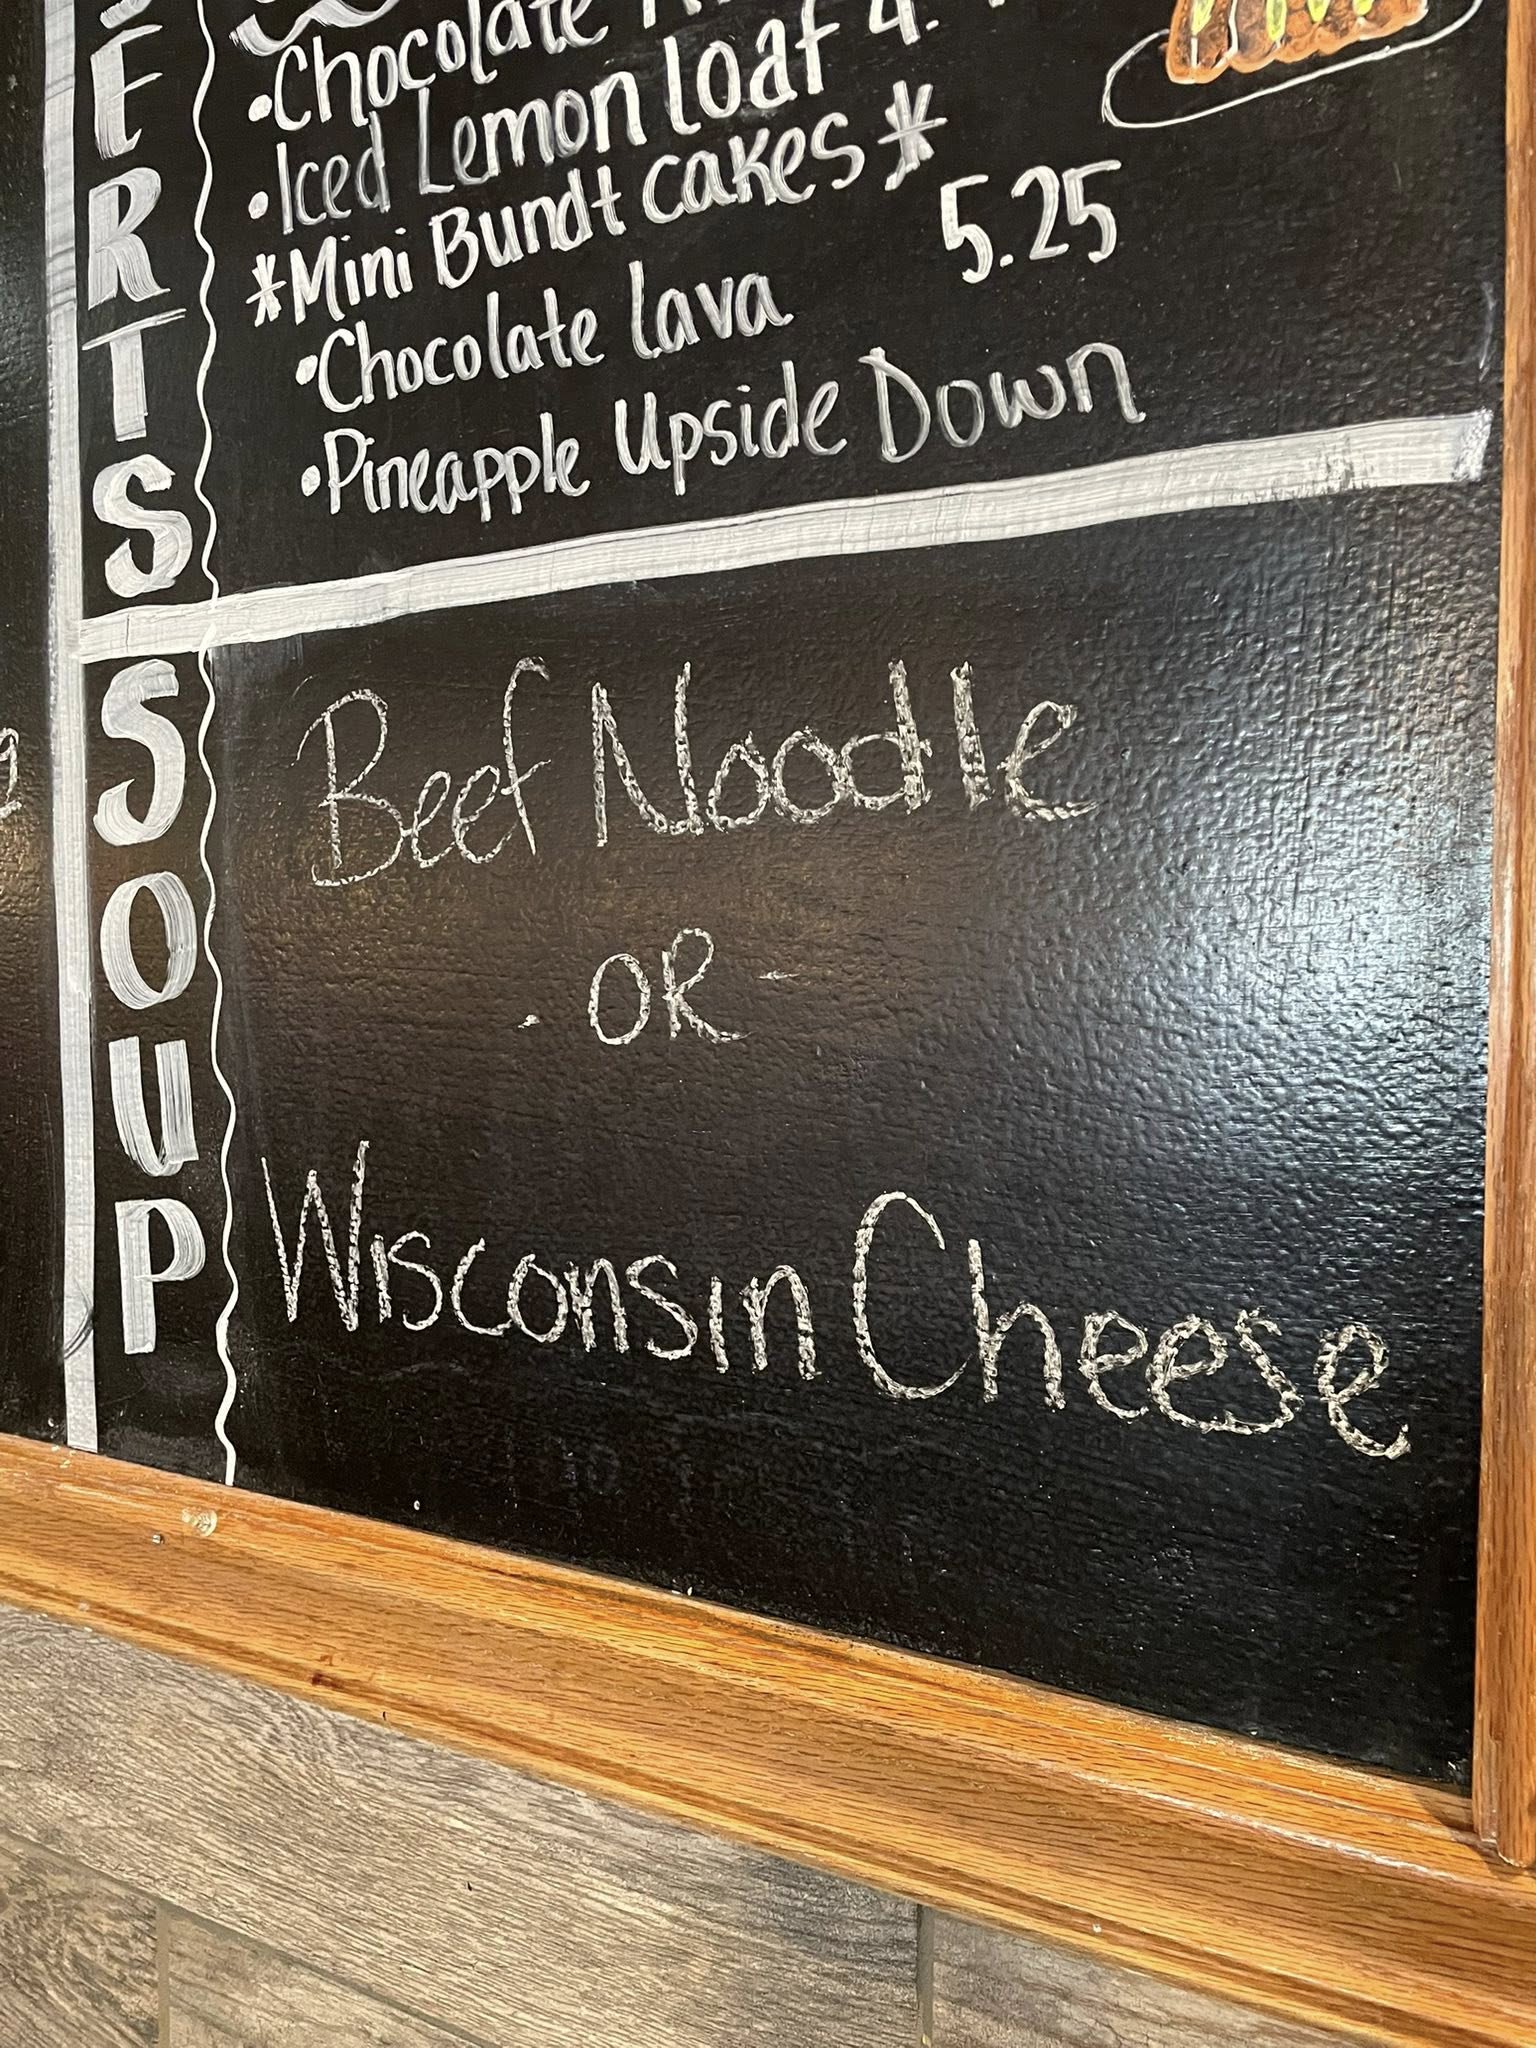 ERTS
Chocolate
• Iced Lemon loaf 4.
*Mini Bundt cakes*
• Chocolate lava 5.25
• Pineapple Upside Down
SOUP
Beef Noodle
- OR -
Wisconsin Cheese